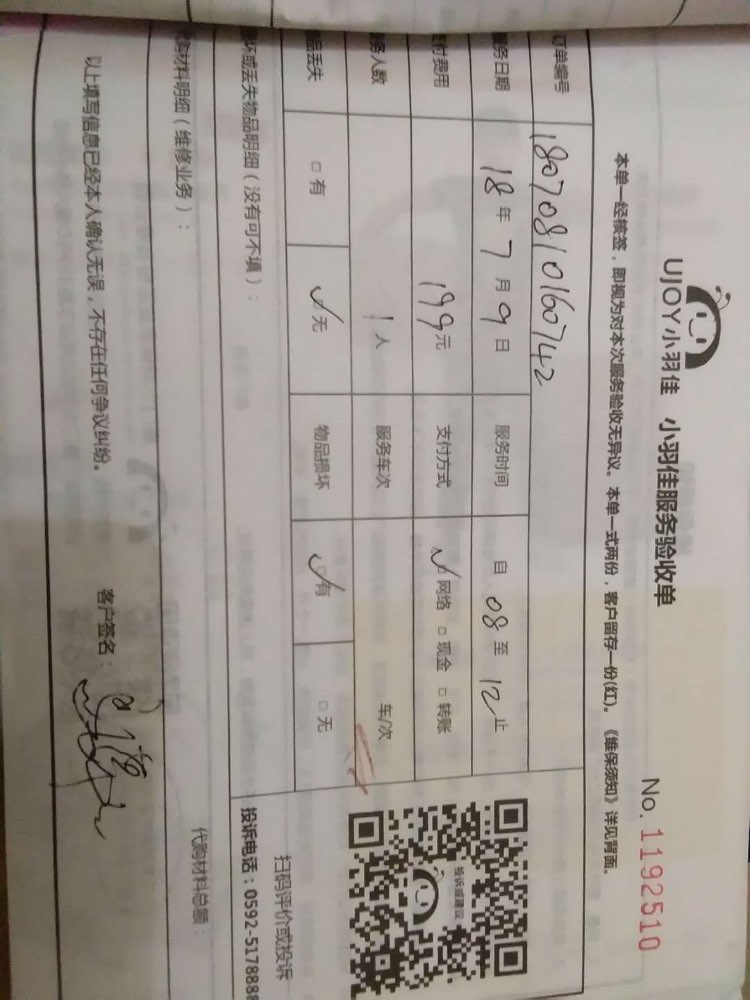 UJOY小羽佳 小羽佳服务验收单
No. 1192510
本单一经核签，即视为对本次服务验收无异议。本单一式两份，客户留存一份(红)。《维保须知》详见背面。
订单编号 18070810160742
服务日期 18年7月9日 服务时间 自08至12止
支付费用 199元 支付方式 ☑网络 □现金 □转账
服务人数 1人 服务车次 车/次
物品丢失 □有 ☑无 物品损坏 ☑有 □无
投诉或建议
扫码评价或投诉
投诉电话：0592-5178888
损坏或丢失物品明细（没有可不填）：
代购材料明细（维修业务）： 代购材料总额：
以上填写信息已经本人确认无误，不存在任何争议纠纷。 客户签名：